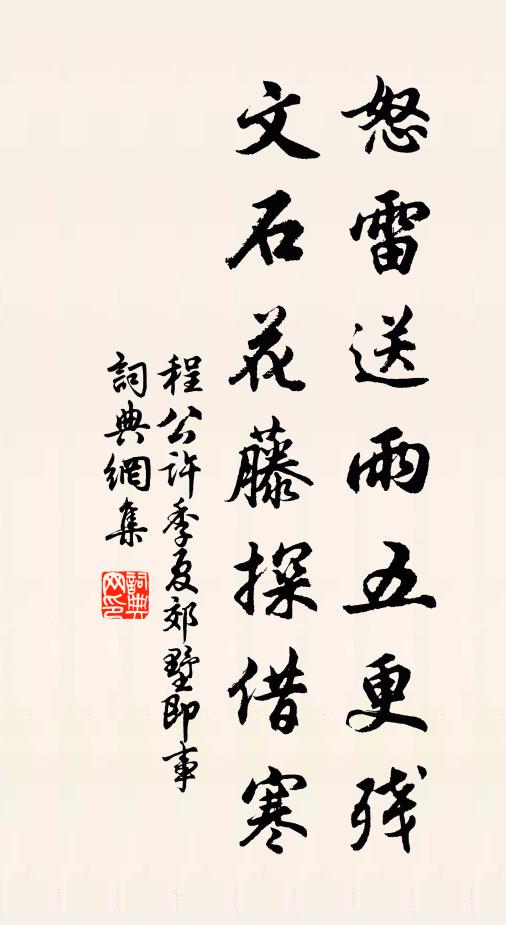 怒雷送雨五更残
文石花藤探借寒
程公许季夏郊墅即事
詞典網集
詞典網印